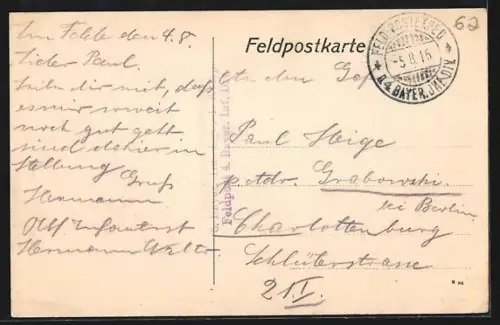 62
Feldpostkarte
FELDPOSTEXPED.
-5.8.15
D. 4. BAYER. INF. DIV.
Im Felde den 4.8.
Lieber Paul.
teile dir mit, daß
es mir soweit
noch gut geht
sind dahier in
Stellung
Gruß
Hermann
Infanterist
Hermann
An den Gef
Paul Heige
p. Adr. Grabowski.
bei Berlin
Charlottenburg
Schlüterstrasse
21 I.
Feldpost 4. Bayer. Inf.